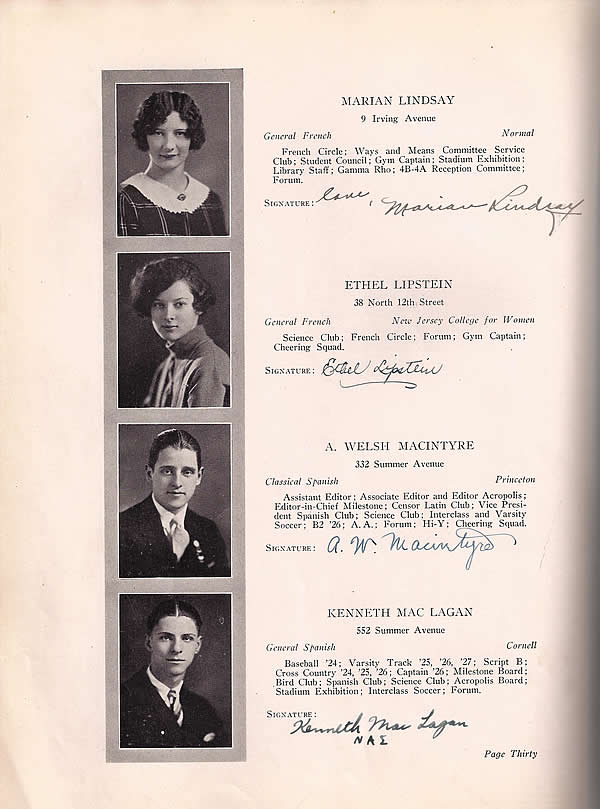 MARIAN LINDSAY
9 Irving Avenue
General French Normal
French Circle; Ways and Means Committee Service
Club; Student Council; Gym Captain; Stadium Exhibition;
Library Staff; Gamma Rho; 4B-4A Reception Committee;
Forum.
SIGNATURE: Love, Marian Lindsay
ETHEL LIPSTEIN
38 North 12th Street
General French New Jersey College for Women
Science Club; French Circle; Forum; Gym Captain;
Cheering Squad.
SIGNATURE: Ethel Lipstein
A. WELSH MACINTYRE
332 Summer Avenue
Classical Spanish Princeton
Assistant Editor; Associate Editor and Editor Acropolis;
Editor-in-Chief Milestone; Censor Latin Club; Vice Presi-
dent Spanish Club; Science Club; Interclass and Varsity
Soccer; B2 '26; A.A.; Forum; Hi-Y; Cheering Squad.
SIGNATURE: A. W. Macintyre
KENNETH MAC LAGAN
552 Summer Avenue
General Spanish Cornell
Baseball '24; Varsity Track '25, '26, '27; Script B;
Cross Country '24, '25, '26; Captain '26; Milestone Board;
Bird Club; Spanish Club; Science Club; Acropolis Board;
Stadium Exhibition; Interclass Soccer; Forum.
SIGNATURE:
Kenneth Mac Lagan
ΝΑΣ
Page Thirty